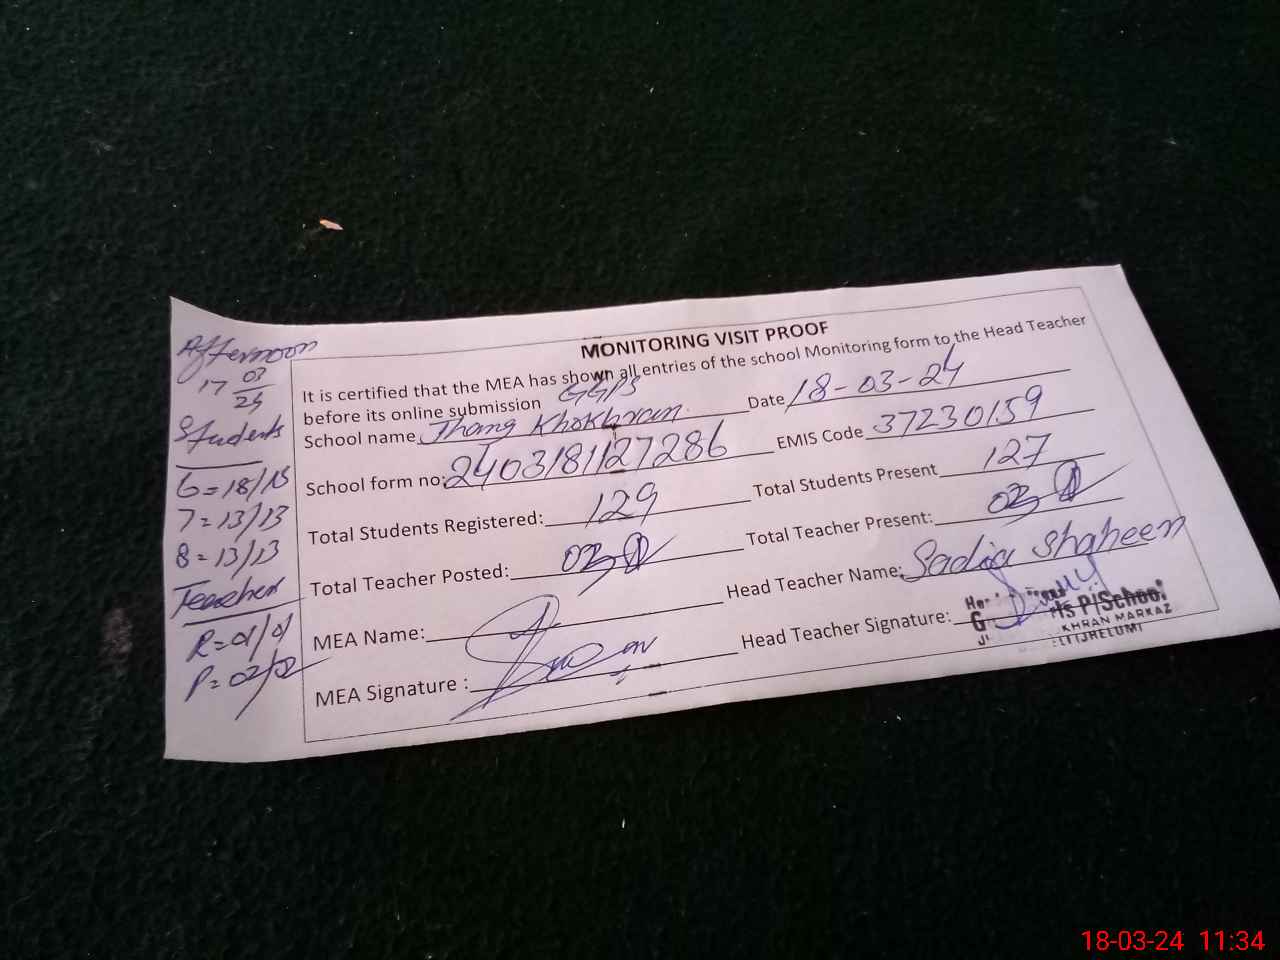 MONITORING VISIT PROOF
It is certified that the MEA has shown all entries of the school Monitoring form to the Head Teacher
before its online submission GGPS
School name Jhang Khokhran Date 18-03-24
School form no: 2403181127286 EMIS Code 37230159
Total Students Registered: 129 Total Students Present 127
Total Teacher Posted: 03 Total Teacher Present: 03
MEA Name: Head Teacher Name: Sadia Shaheen
MEA Signature : Head Teacher Signature:
ls P/School
KHRAN MARKAZ
Afternoon
17 03
24
Students
6=18/18
7=13/13
8=13/13
Teacher
R=01/01
P=02/02
18-03-24 11:34